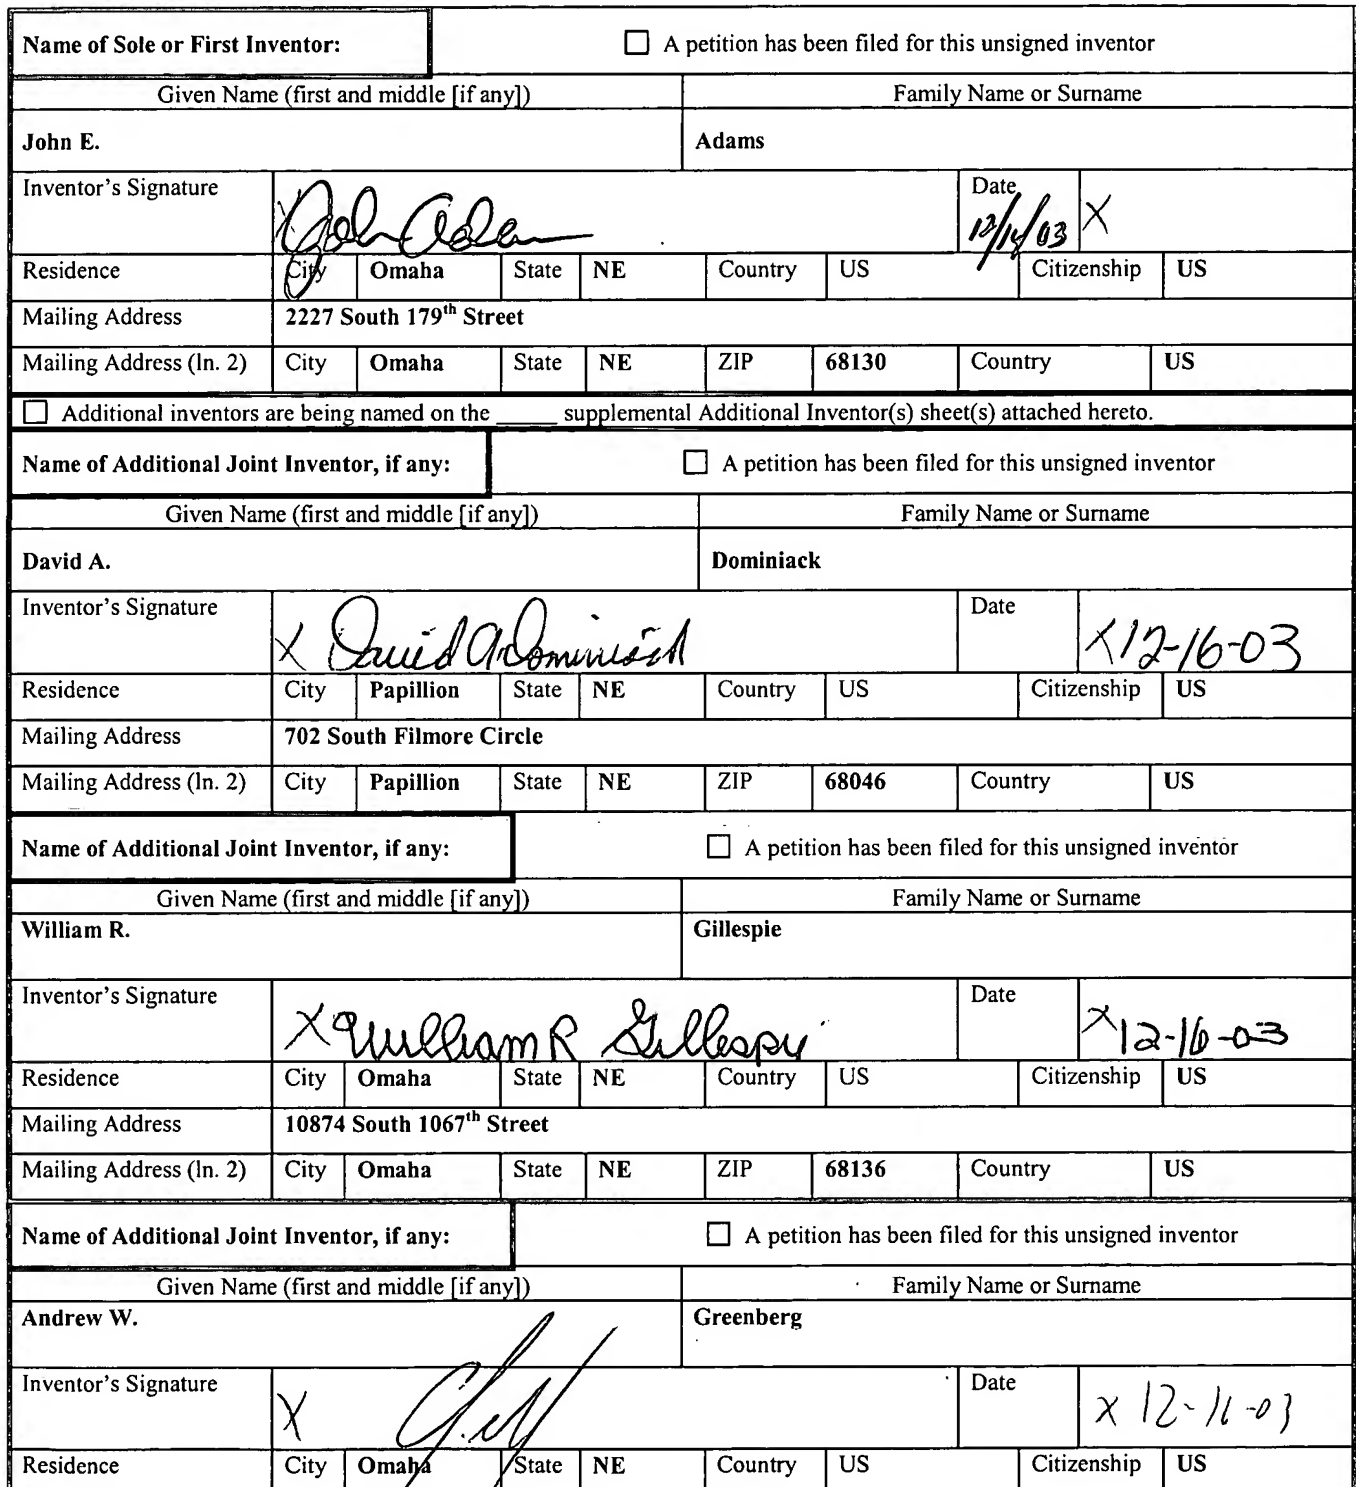 Name of Sole or First Inventor: ☐ A petition has been filed for this unsigned inventor
Given Name (first and middle [if any]) Family Name or Surname
John E. Adams
Inventor's Signature Date 12/ /03 X
Residence City Omaha State NE Country US Citizenship US
Mailing Address 2227 South 179th Street
Mailing Address (ln. 2) City Omaha State NE ZIP 68130 Country US
☐ Additional inventors are being named on the _____ supplemental Additional Inventor(s) sheet(s) attached hereto.
Name of Additional Joint Inventor, if any: ☐ A petition has been filed for this unsigned inventor
Given Name (first and middle [if any]) Family Name or Surname
David A. Dominiack
Inventor's Signature X David A Dominiack Date X 12-16-03
Residence City Papillion State NE Country US Citizenship US
Mailing Address 702 South Filmore Circle
Mailing Address (ln. 2) City Papillion State NE ZIP 68046 Country US
Name of Additional Joint Inventor, if any: ☐ A petition has been filed for this unsigned inventor
Given Name (first and middle [if any]) Family Name or Surname
William R. Gillespie
Inventor's Signature X William R Gillespie Date X 12-16-03
Residence City Omaha State NE Country US Citizenship US
Mailing Address 10874 South 1067th Street
Mailing Address (ln. 2) City Omaha State NE ZIP 68136 Country US
Name of Additional Joint Inventor, if any: ☐ A petition has been filed for this unsigned inventor
Given Name (first and middle [if any]) Family Name or Surname
Andrew W. Greenberg
Inventor's Signature X Date X 12-16-03
Residence City Omaha State NE Country US Citizenship US